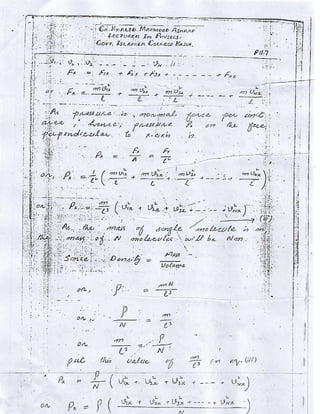 CH. KHALID MAHMOOD ASHRAF
LECTURER IN PHYSICS.
GOVT. ISLAMIA COLLEGE KASUR.
P11.7
Fx = F1x + F2x + F3x + - - - - - - + FNx
or Fx = mv²1x/L + mv²2x/L + mv²3x/L + - - - - + mv²Nx/L
As pressure is normal force per unit
area, hence, pressure Px on the face
perpendicular to x-axis is
Px = Fx/A = Fx/L²
or, Px = 1/L² ( mv²1x/L + mv²2x/L + mv²3x/L + - - - - + mv²Nx/L )
or, Px = m/L³ ( v²1x + v²2x + v²3x + - - - - + v²Nx ) → (iii)
As the mass of single molecule is m
the mass of N molecules will be Nm.
Since Density = Mass/Volume
or, ρ = mN/L³
or, ρ/N = m/L³
or m/L³ = ρ/N
put this value of m/L³ in eq. (iii)
Px = ρ/N ( v²1x + v²2x + v²3x + - - - + v²Nx )
or Px = ρ ( v²1x + v²2x + v²3x + - - - + v²Nx / N )